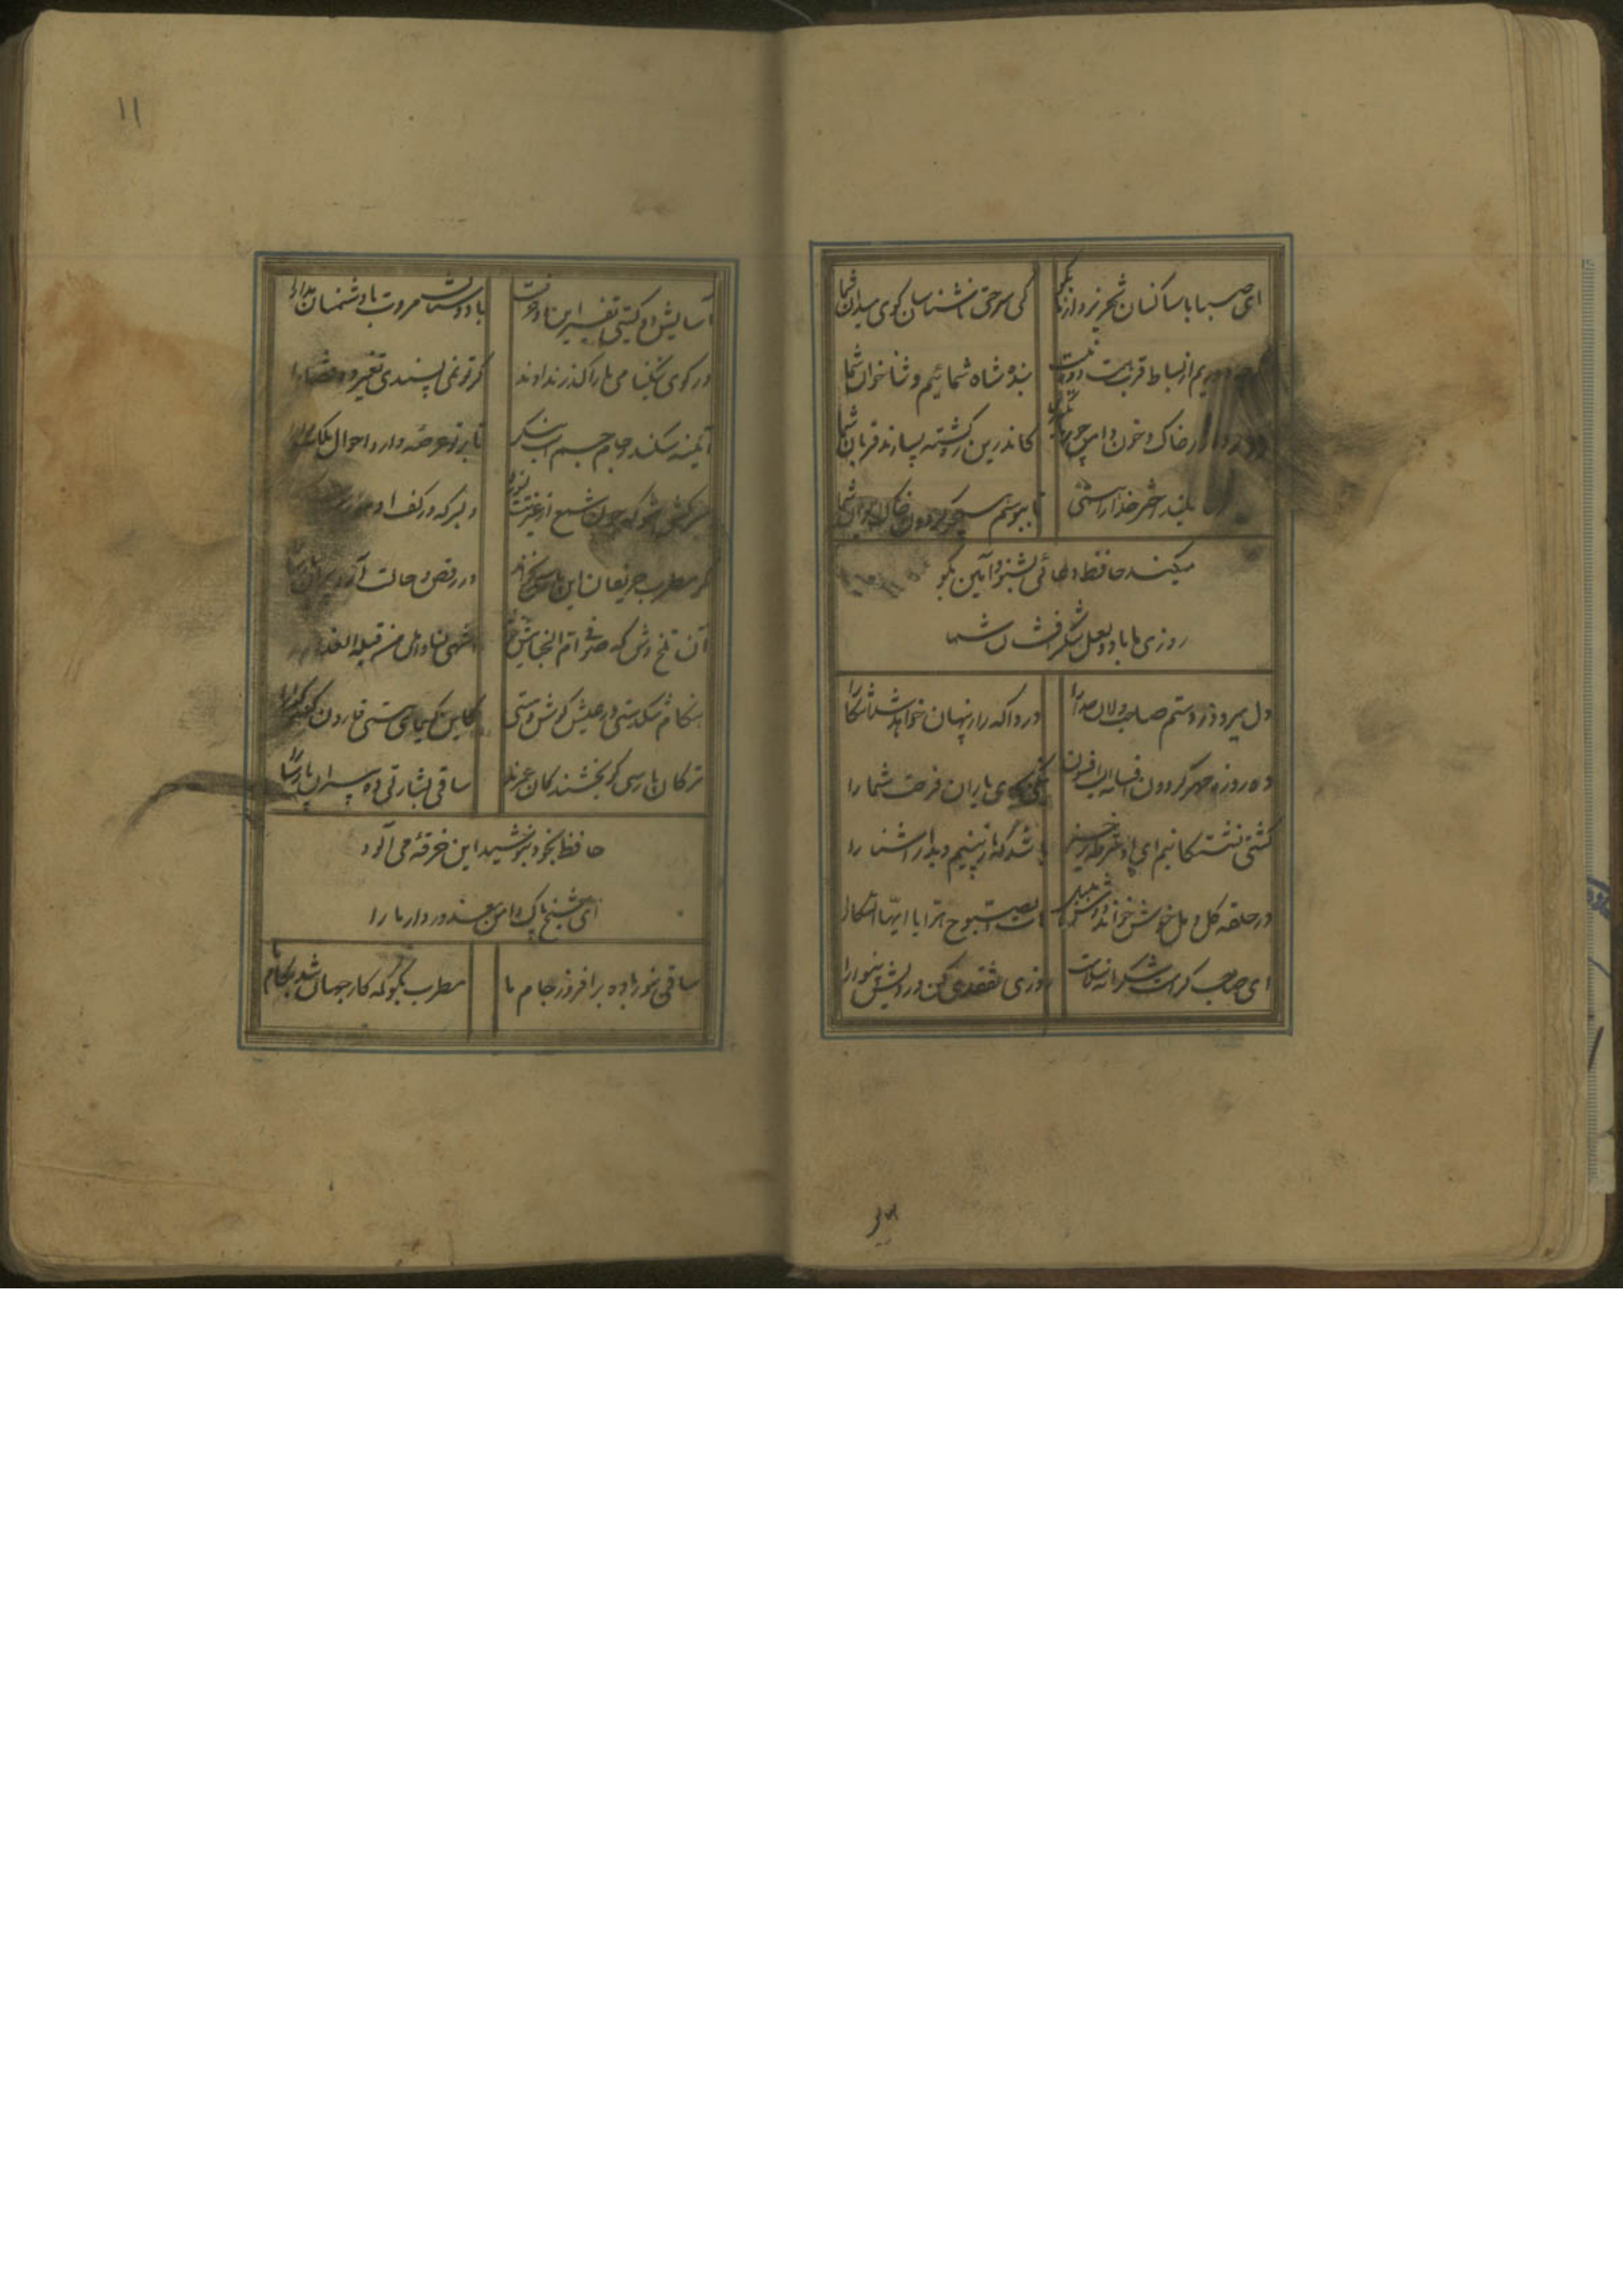 ای صبا با ساکنان شهر یزد از ما بگو کی سر حق ناشناسان کوی میدان شما
دوریم از بساط قرب همت دور نیست بنده شاه شمائیم و ثناخوان شما
دور دار از خاک و خون دامن چو بر ما بگذری کاندرین ره کشته بسیارند قربان شما
بلند اختر خدا را همتی تا ببوسم همچو گردون خاک ایوان شما
میکند حافظ دعائی بشنو و آمین بگو
روزی ما باد لعل شکرفشان شما
دل میرود ز دستم صاحبدلان خدا را دردا که راز پنهان خواهد شد آشکارا
ده روزه مهر گردون افسانه است افسون نیکی بجای یاران فرصت شما را
کشتی نشستگانیم ای باد شرطه برخیز باشد که باز بینیم دیدار آشنا را
در حلقه گل و مل خوش خواند دوش بلبل هات الصبوح هبوا یا ایها السکارا
ای صاحب کرامت شکرانه سلامت روزی تفقدی کن درویش بینوا را
بیر
۱۱
آسایش دو گیتی تفسیر این دو حرفست با دوستان مروت با دشمنان مدارا
در کوی نیکنامی ما را گذر ندادند گر تو نمی پسندی تغییر ده قضا را
آیینه سکندر جام جم است بنگر تا بر تو عرضه دارد احوال ملک دارا
سرکش مشو که چون شمع از غیرتت بسوزد دلبر که در کف او
گر مطرب حریفان این پارسی بخواند در رقص و حالت آرد پیران پارسا را
آن تلخ وش که صوفی ام الخبائثش خواند اشهی لنا و احلی من قبلة العذارا
هنگام تنگدستی در عیش کوش و مستی کاین کیمیای هستی قارون کند گدا را
ترکان پارسی گو بخشندگان عمرند ساقی بشارتی ده پیران پارسا را
حافظ بخود نپوشید این خرقه می آلود
ای شیخ پاک دامن معذور دار ما را
ساقی بنور باده برافروز جام ما مطرب بگو که کار جهان شد بکام ما